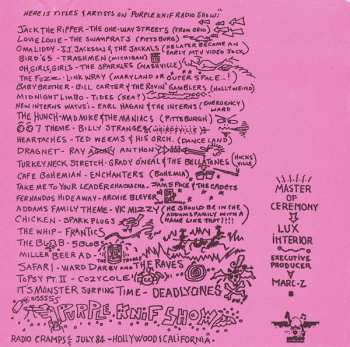 HERE IS TITLES & ARTISTS ON "PURPLE KNIF RADIO SHOW:
JACK THE RIPPER - THE ONE-WAY STREETS (FROM OHIO)
LOVIE LOUIE - THE SWAMPRATS (PITTSBURG)
OMALIDDY - J.J. JACKSON & THE JACKALS (HE LATER BECAME AN EARLY MTV VIDEO JACK)
BIRD '65 - TRASHMEN (MICHIGAN)
OH, GIRLS, GIRLS - THE SPARKLES (NASHVILLE)
THE FUZZ - LINK WRAY (MARYLAND OR OUTER SPACE...!)
BABY BROTHER - BILL CARTER & THE ROVIN' GAMBLERS (HOLLYWEIRD)
MIDNIGHT LIMBO - TIDES (SEA!)
NEW INTERNS WATUSI - EARL HAGAN & THE INTERNS (EMERGENCY WARD)
THE HUNCH - MAD MIKE & THE MANIACS (PITTSBURGH)
007 THEME - BILLY STRANGE
HEARTACHES - TED WEEMS & HIS ORCH. (DANCELAND)
DRAGNET - RAY ANTHONY
TURKEY NECK STRETCH - GRADY O'NEAL & THE BELLATONES (HICKSVILLE)
CAFE BOHEMIAN - ENCHANTERS (BOHEMIA)
TAKE ME TO YOUR LEADER CHACHACHA - JAMS FACE & THE CADETS
FERNANDOS HIDEAWAY - ARCHIE BLEYER
ADDAMS FAMILY THEME - VIC MIZZY (HE SHOULD BE IN THE ADDAMS FAMILY WITH A NAME LIKE THAT!!!)
CHICKEN - SPARK PLUGS
THE WHIP - FRANTICS
THE BLOB - 5 BLOBS
MILLER BEER AD -
SAFARI - WARD DARBY AND THE RAVES
TOPSY PT. II - COZY COLE
IT'S MONSTER SURFING TIME - DEADLY ONES
PURPLE KNIF SHOW
RADIO CRAMPS JULY 84 - HOLLYWOOD CALIFORNIA.
MASTER OF CEREMONY
LUX INTERIOR
EXECUTIVE PRODUCER
MARC-Z